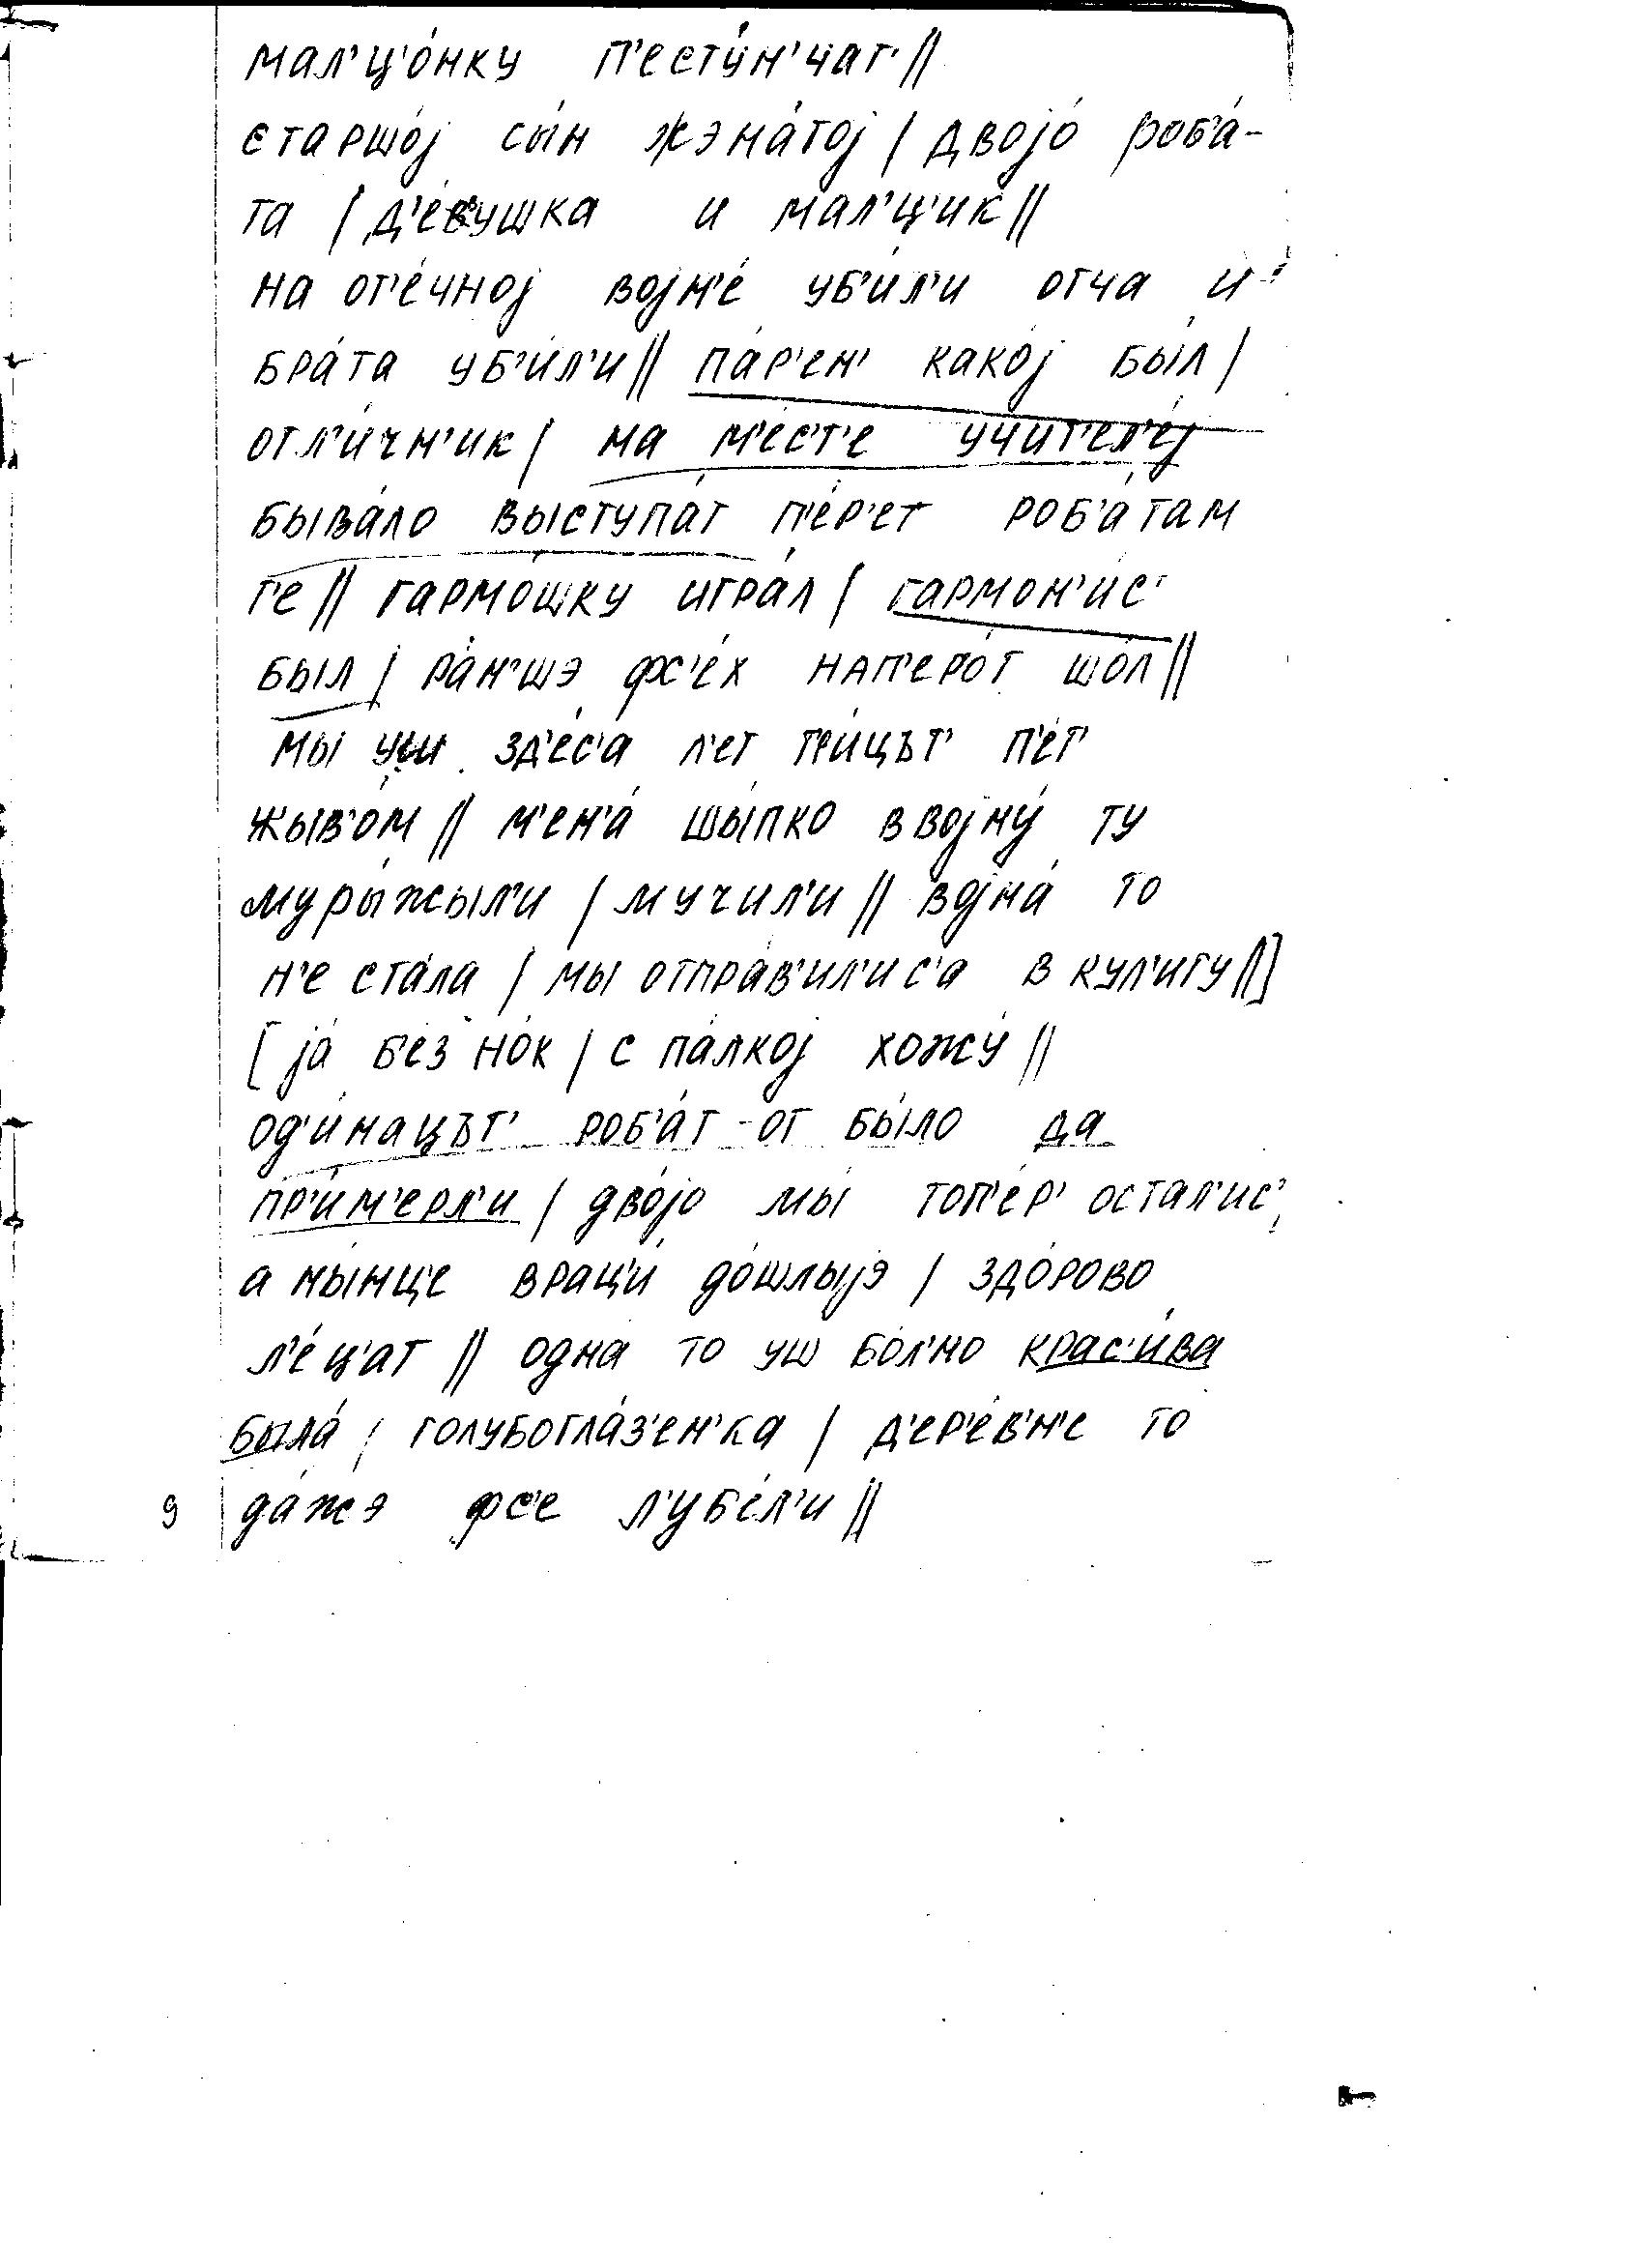 мал'ц'о́нку п'есту́н'чат' //
старшо́j сы́н жэна́тоj / двоjо́ роб'а́-
та / д'е́вушка и мал'ц'ик //
на от'е́чноj воjн'е́ уб'и́л'и отча и
бра́та уб'и́л'и // па́р'ен' како́j бы́л /
отл'и́чн'ик / на м'е́с'т'е учит'ел'е́j
быва́ло выступа́т п'е́р'ет роб'а́там
т'е // гармо́шку игра́л / гармон'и́с'
был / ра́н'шэ фс'е́х нап'еро́т шо́л //
мы уш зд'ес'а́ л'ет п'ет'
жыв'о́м // м'ен'а́ шы́пко в воjну́ ту
муры́жыл'и / мучил'и // воjна́ то
н'е ста́ла / мы отпра́в'ил'ис'а в кул'игу //]
[jа́ б'ез но́к / с па́лкоj хожу́ //
од'и́нацът' роб'а́т от бы́ло да
пр'и́м'ерл'и / дво́jо мы́ топ'е́р' остал'ис'
а ны́нц'е врац'и́ до́шлыjэ / здо́рово
л'е́ц'ат // одна́ то уш бо́л'но крас'и́ва
была́ / голубогла́з'ен'ка / д'ер'е́в'н'е то
да́жэ фс'е л'уб'е́л'и //
9